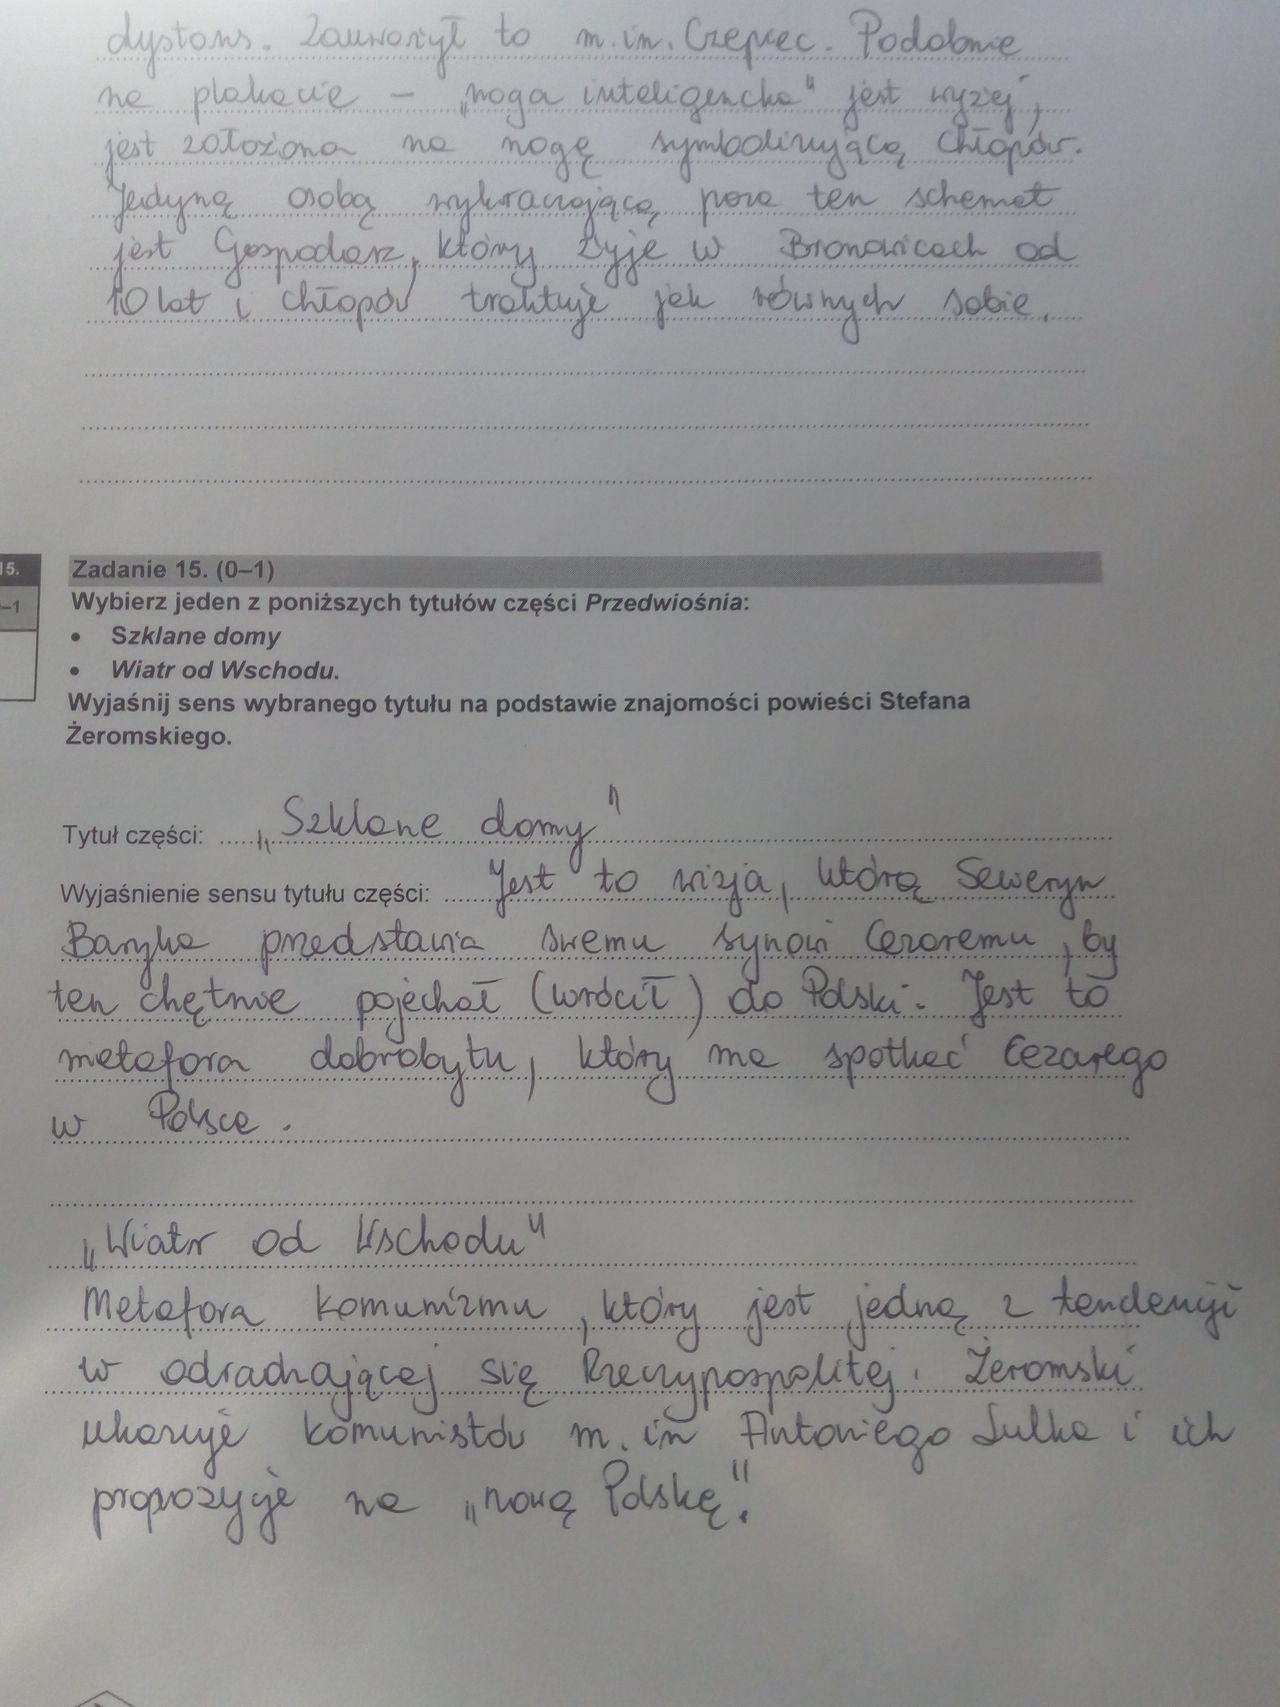 dystans. Zauważył to m.in. Czepiec. Podobnie
na plakacie – „noga inteligencka" jest wyżej,
jest założona na nogę symbolizującą chłopów.
Jedyną osobą wykraczającą poza ten schemat
jest Gospodarz, który żyje w Bronowicach od
10 lat i chłopów traktuje jak równych sobie.
15.
–1
Zadanie 15. (0–1)
Wybierz jeden z poniższych tytułów części Przedwiośnia:
• Szklane domy
• Wiatr od Wschodu.
Wyjaśnij sens wybranego tytułu na podstawie znajomości powieści Stefana
Żeromskiego.
Tytuł części: „Szklane domy"
Wyjaśnienie sensu tytułu części: Jest to wizja, którą Seweryn
Baryka przedstawia swemu synowi Cezaremu, by
ten chętnie pojechał (wrócił) do Polski. Jest to
metafora dobrobytu, który ma spotkać Cezarego
w Polsce.
„Wiatr od Wschodu"
Metafora komunizmu, który jest jedną z tendencji
w odradzającej się Rzeczypospolitej. Żeromski
ukazuje komunistów m.in Antoniego Lulka i ich
propozycje na „nową Polskę".